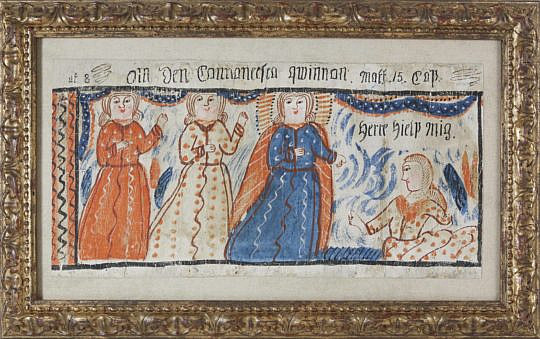 N: 8 Om Den Cananeesca qwinnon. Matt. 15. Cap.
Herre hielp mig.